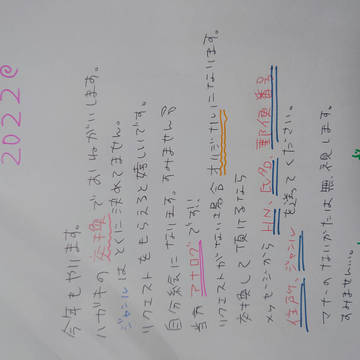 2022@
今年もやります。
ハガキの交換でおねがいします。
ジャンルはとくに決めてません。
リクエストをもらえると嬉しいです。
自分絵になります。すみません💦
当方アナログです!!
リクエストがない場合オリジナルになります。
交換して頂けるなら
メッセージからHN、氏名、郵便番号
住所、ジャンルを送ってください。
マナーのないかたは無視します。
すみません…。